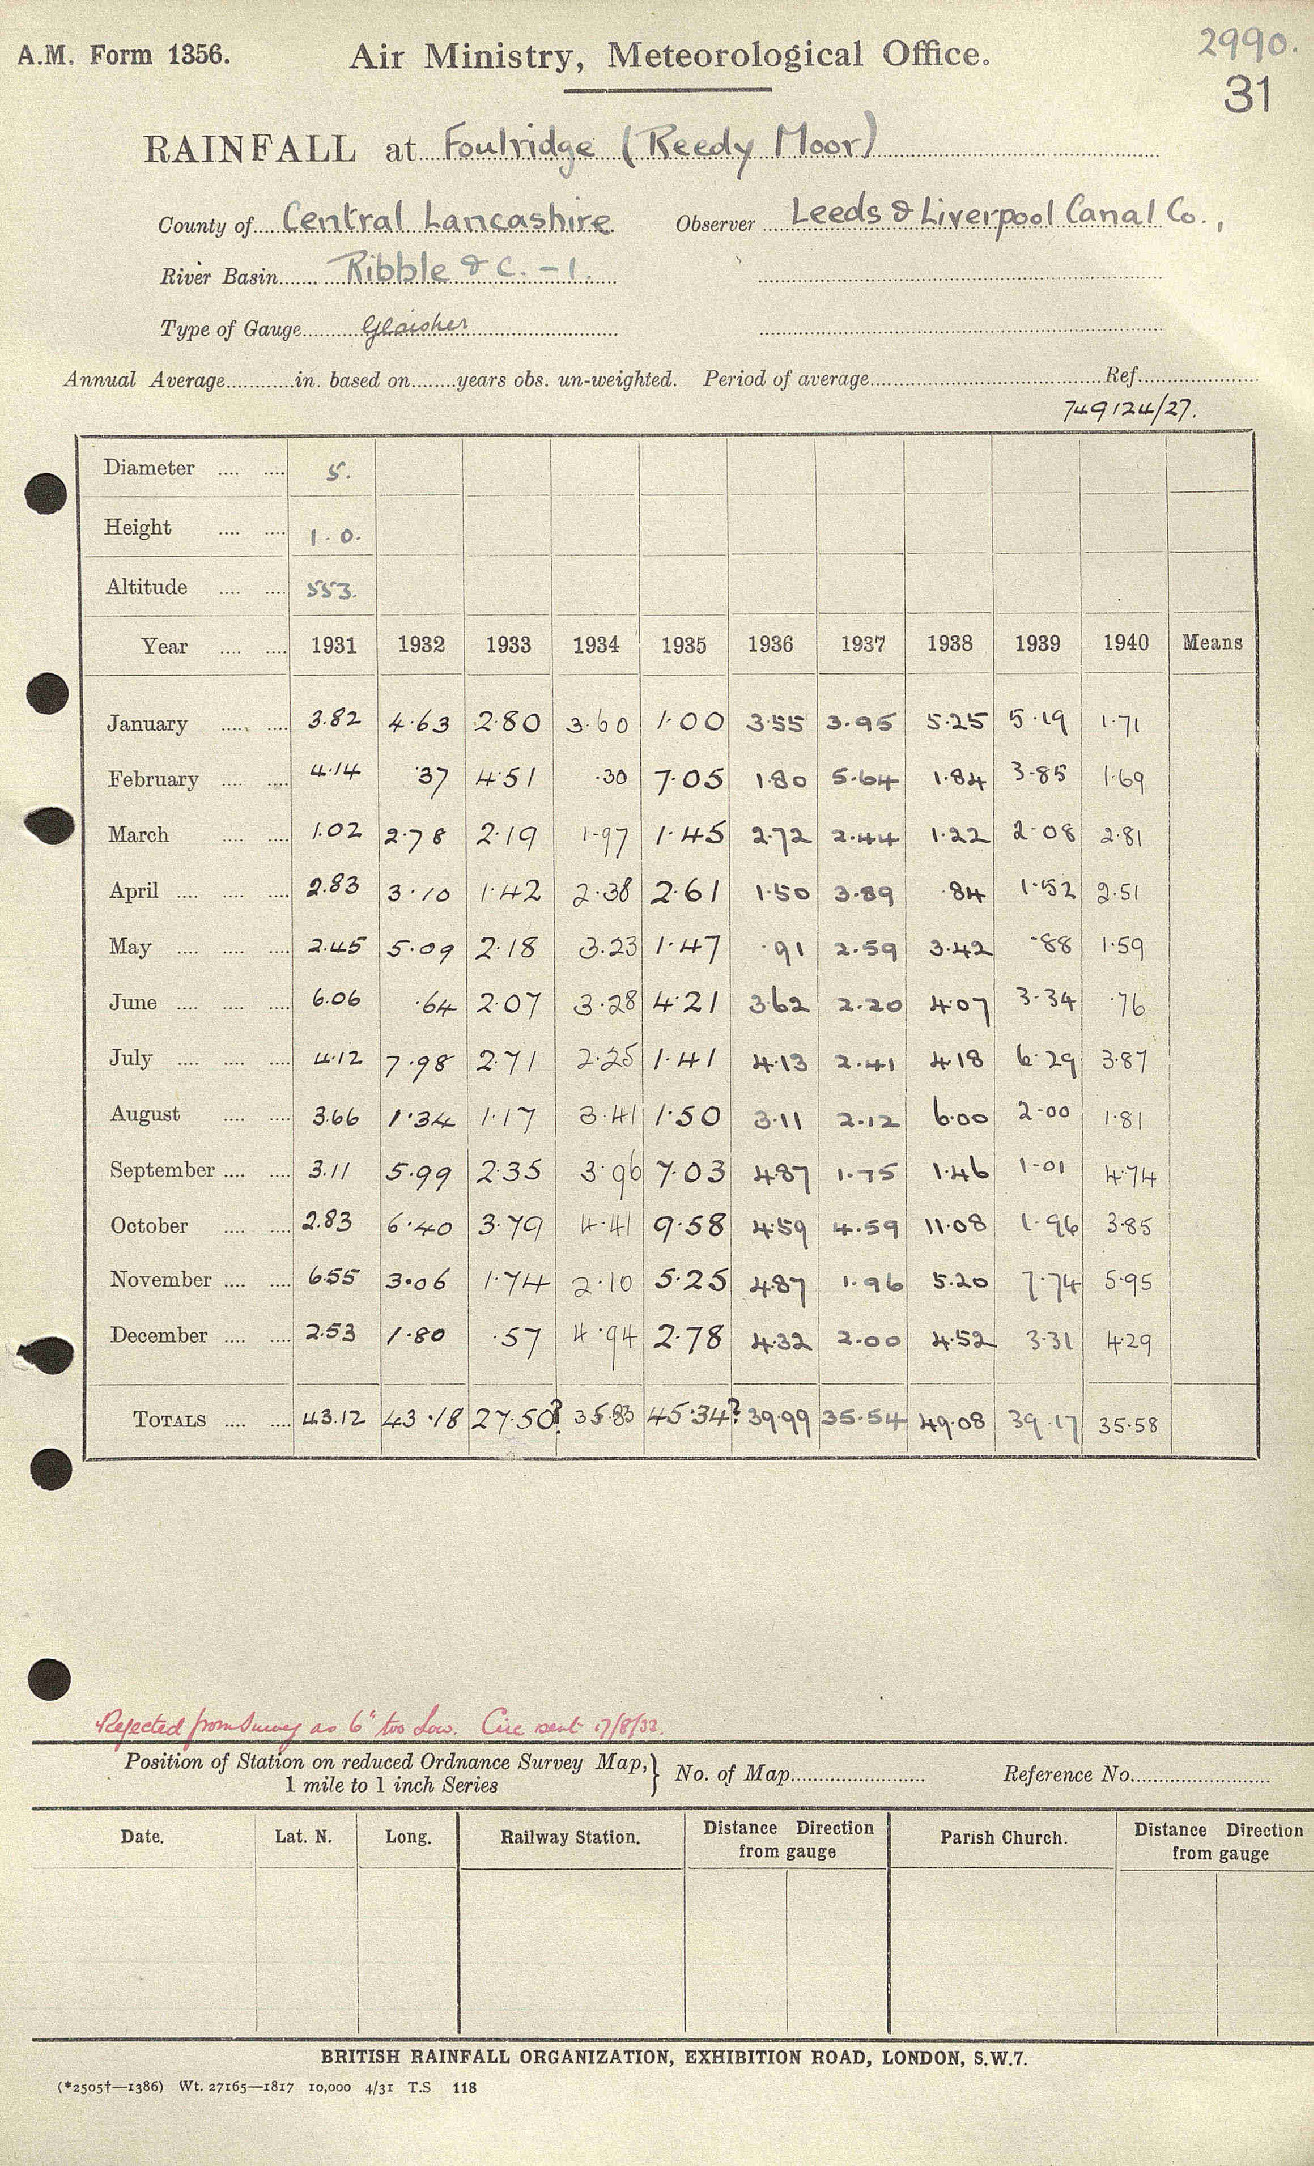 A.M. Form 1356.
Air Ministry, Meteorological Office.
2990.
31
RAINFALL at Foulridge (Reedy Moor)
County of Central Lancashire Observer Leeds & Liverpool Canal Co.,
River Basin Ribble & C. - 1.
Type of Gauge Glaisher
Annual Average in. based on years obs. un-weighted. Period of average Ref.
749124/27.
Diameter 5.
Height 1.0.
Altitude 553.
Year 1931 1932 1933 1934 1935 1936 1937 1938 1939 1940 Means
January 3.82 4.63 2.80 3.60 1.00 3.55 3.95 5.25 5.19 1.71
February 4.14 .37 4.51 .30 7.05 1.80 5.64 1.84 3.85 1.69
March 1.02 2.78 2.19 1.97 1.45 2.72 2.44 1.22 2.08 2.81
April 2.83 3.10 1.42 2.38 2.61 1.50 3.89 .84 1.52 2.51
May 2.45 5.09 2.18 3.23 1.47 .91 2.59 3.42 .88 1.59
June 6.06 .64 2.07 3.28 4.21 3.62 2.20 4.07 3.34 .76
July 4.12 7.98 2.71 2.25 1.41 4.13 2.41 4.18 6.29 3.87
August 3.66 1.34 1.17 3.41 1.50 3.11 2.12 6.00 2.00 1.81
September 3.11 5.99 2.35 3.96 7.03 4.87 1.75 1.46 1.01 4.74
October 2.83 6.40 3.79 4.41 9.58 4.59 4.59 11.08 1.96 3.85
November 6.55 3.06 1.74 2.10 5.25 4.87 1.96 5.20 7.74 5.95
December 2.53 1.80 .57 4.94 2.78 4.32 2.00 4.52 3.31 4.29
TOTALS 43.12 43.18 27.50? 35.83 45.34? 39.99 35.54 49.08 39.17 35.58
Rejected from Survey as 6" too low. Circ sent 17/8/33.
Position of Station on reduced Ordnance Survey Map,
1 mile to 1 inch Series } No. of Map Reference No.
Date. Lat. N. Long. Railway Station. Distance Direction from gauge Parish Church. Distance Direction from gauge
BRITISH RAINFALL ORGANIZATION, EXHIBITION ROAD, LONDON, S.W.7.
(*2505†—1386) Wt. 27165—1817 10,000 4/31 T.S 118